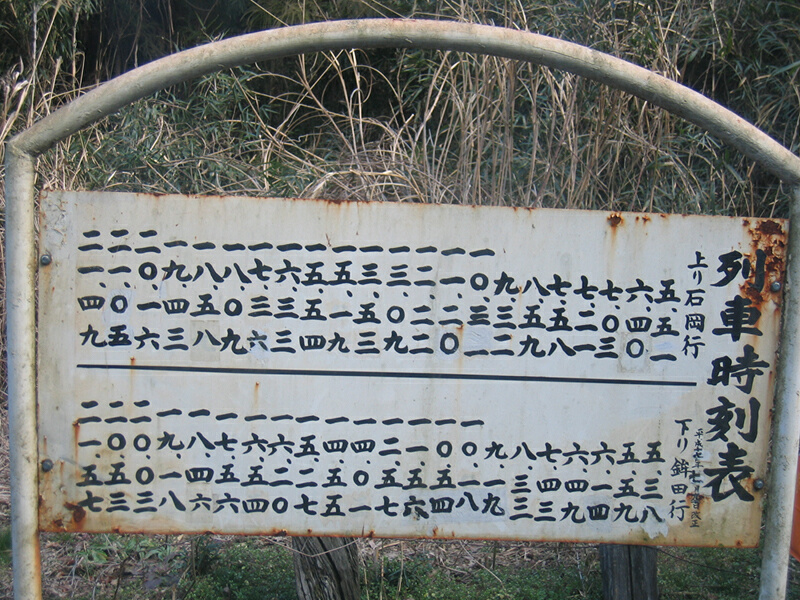 列車時刻表
上り石岡行
五、五一
六、四〇
七、〇三
七、二一
七、五八
八、五九
九、三二
一〇、三一
一一、二〇
一二、二二
一三、〇九
一三、五三
一五、一九
一五、五四
一六、三三
一七、三六
一八、〇九
一八、五八
一九、四三
二〇、一六
二一、〇五
二一、四九
下り鉾田行
五、三八
五、五九
六、一四
六、四九
七、四三
八、三三
九、一九
一〇、一八
一〇、五四
一一、五六
一二、五七
一四、〇一
一四、五五
一五、二七
一六、二〇
一六、五四
一七、五六
一八、四六
一九、一八
二〇、〇三
二〇、五三
二一、五七